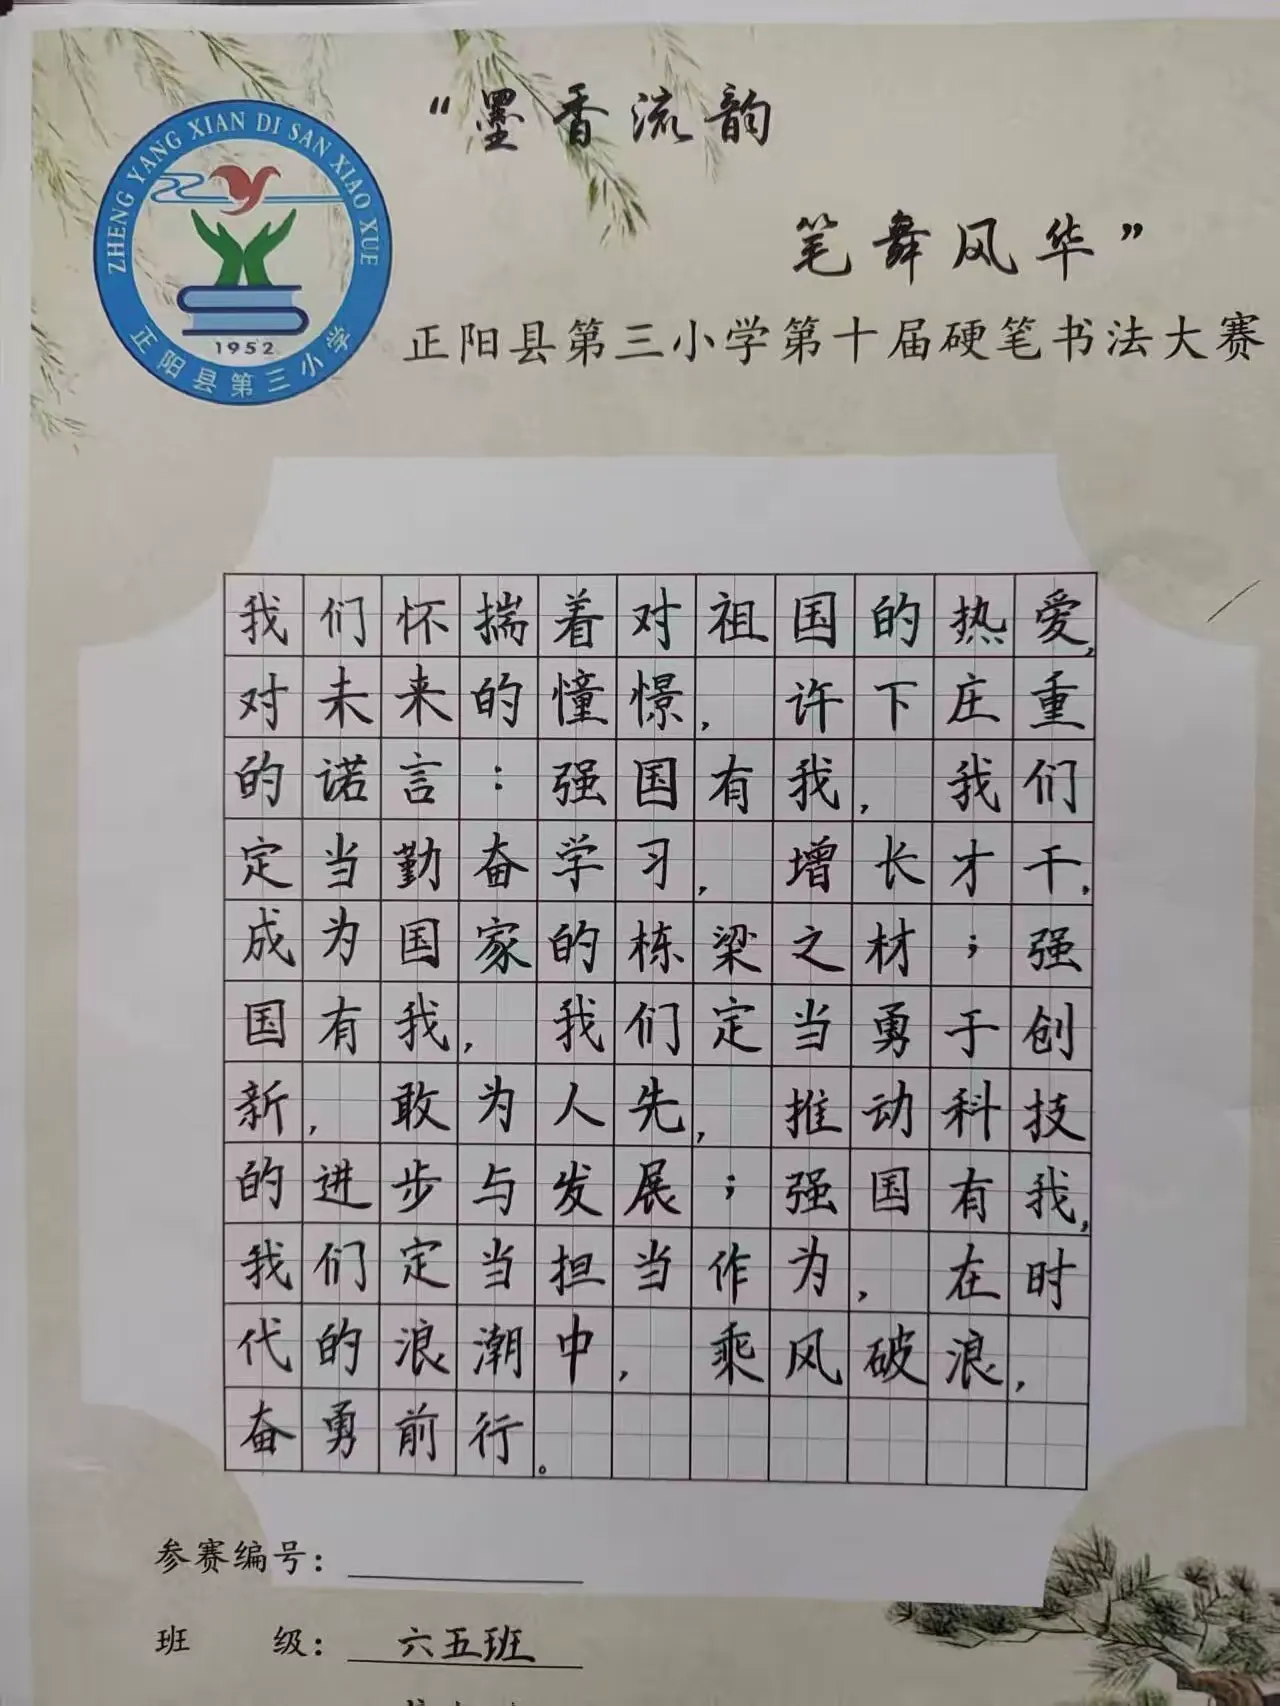 “墨香流韵
笔舞风华”
ZHENG YANG XIAN DI SAN XIAO XUE
1952
正阳县第三小学
正阳县第三小学第十届硬笔书法大赛
我们怀揣着对祖国的热爱，
对未来的憧憬，许下庄重
的诺言：强国有我，我们
定当勤奋学习，增长才干，
成为国家的栋梁之材；强
国有我，我们定当勇于创
新，敢为人先，推动科技
的进步与发展；强国有我，
我们定当担当作为，在时
代的浪潮中，乘风破浪，
奋勇前行。
参赛编号：
班 级：六五班